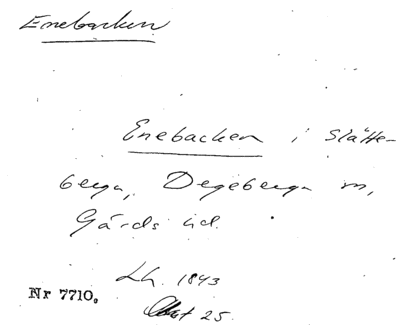 Enebacken
Enebacken i Slätte-
berga, Degeberga sn,
Gärds hd.
Lh. 1843
Nr 7710.
25.